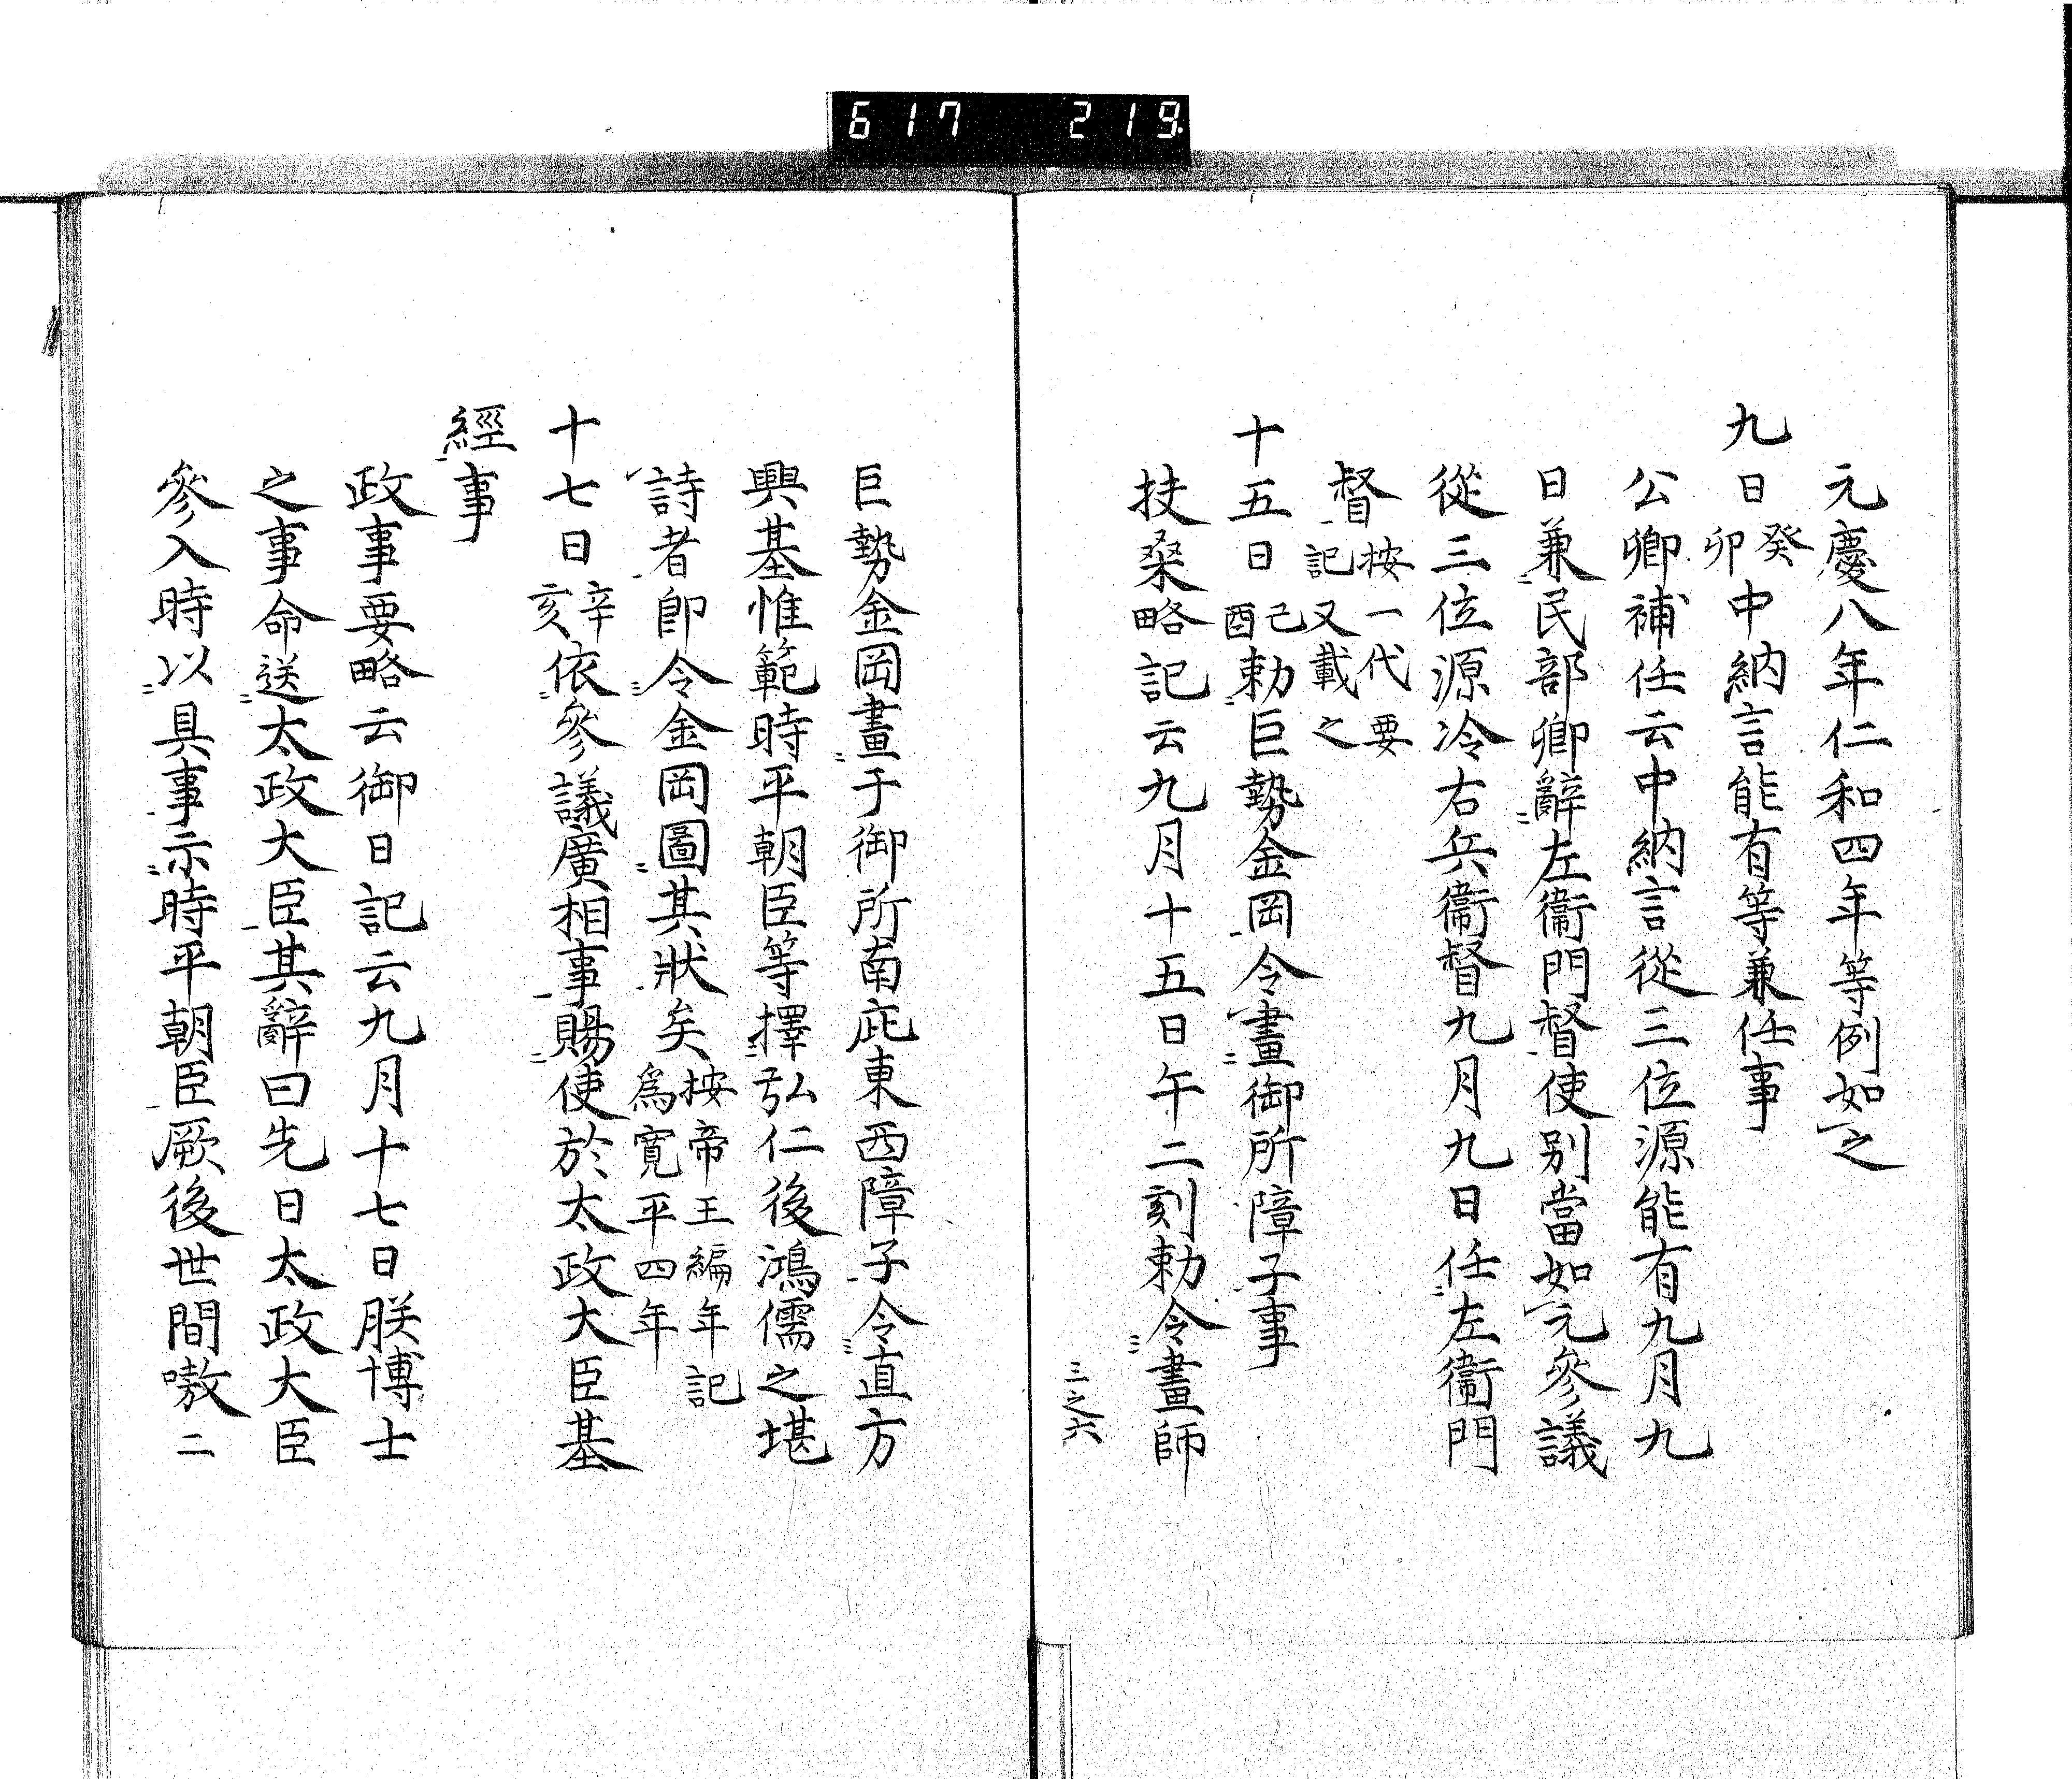 617 219
元慶八年仁和四年等例如之
九日癸卯中納言能有等兼任事
公卿補任云中納言從三位源能有九月九
日兼民部卿辭左衞門督使別當如元參議
從三位源冷右兵衞督九月九日任左衞門
督按一代要記又載之
十五日己酉勅巨勢金岡令畫御所障子事
扶桑略記云九月十五日午二刻勅令畫師
三之六
巨勢金岡畫于御所南庇東西障子令直方
興基惟範時平朝臣等擇弘仁後鴻儒之堪
詩者卽令金岡圖其狀矣按帝王編年記爲寬平四年
十七日辛亥依參議廣相事賜使於太政大臣基
經事
政事要略云御日記云九月十七日朕博士
之事命送太政大臣其辭曰先日太政大臣
參入時以具事示時平朝臣厥後世間嗷二